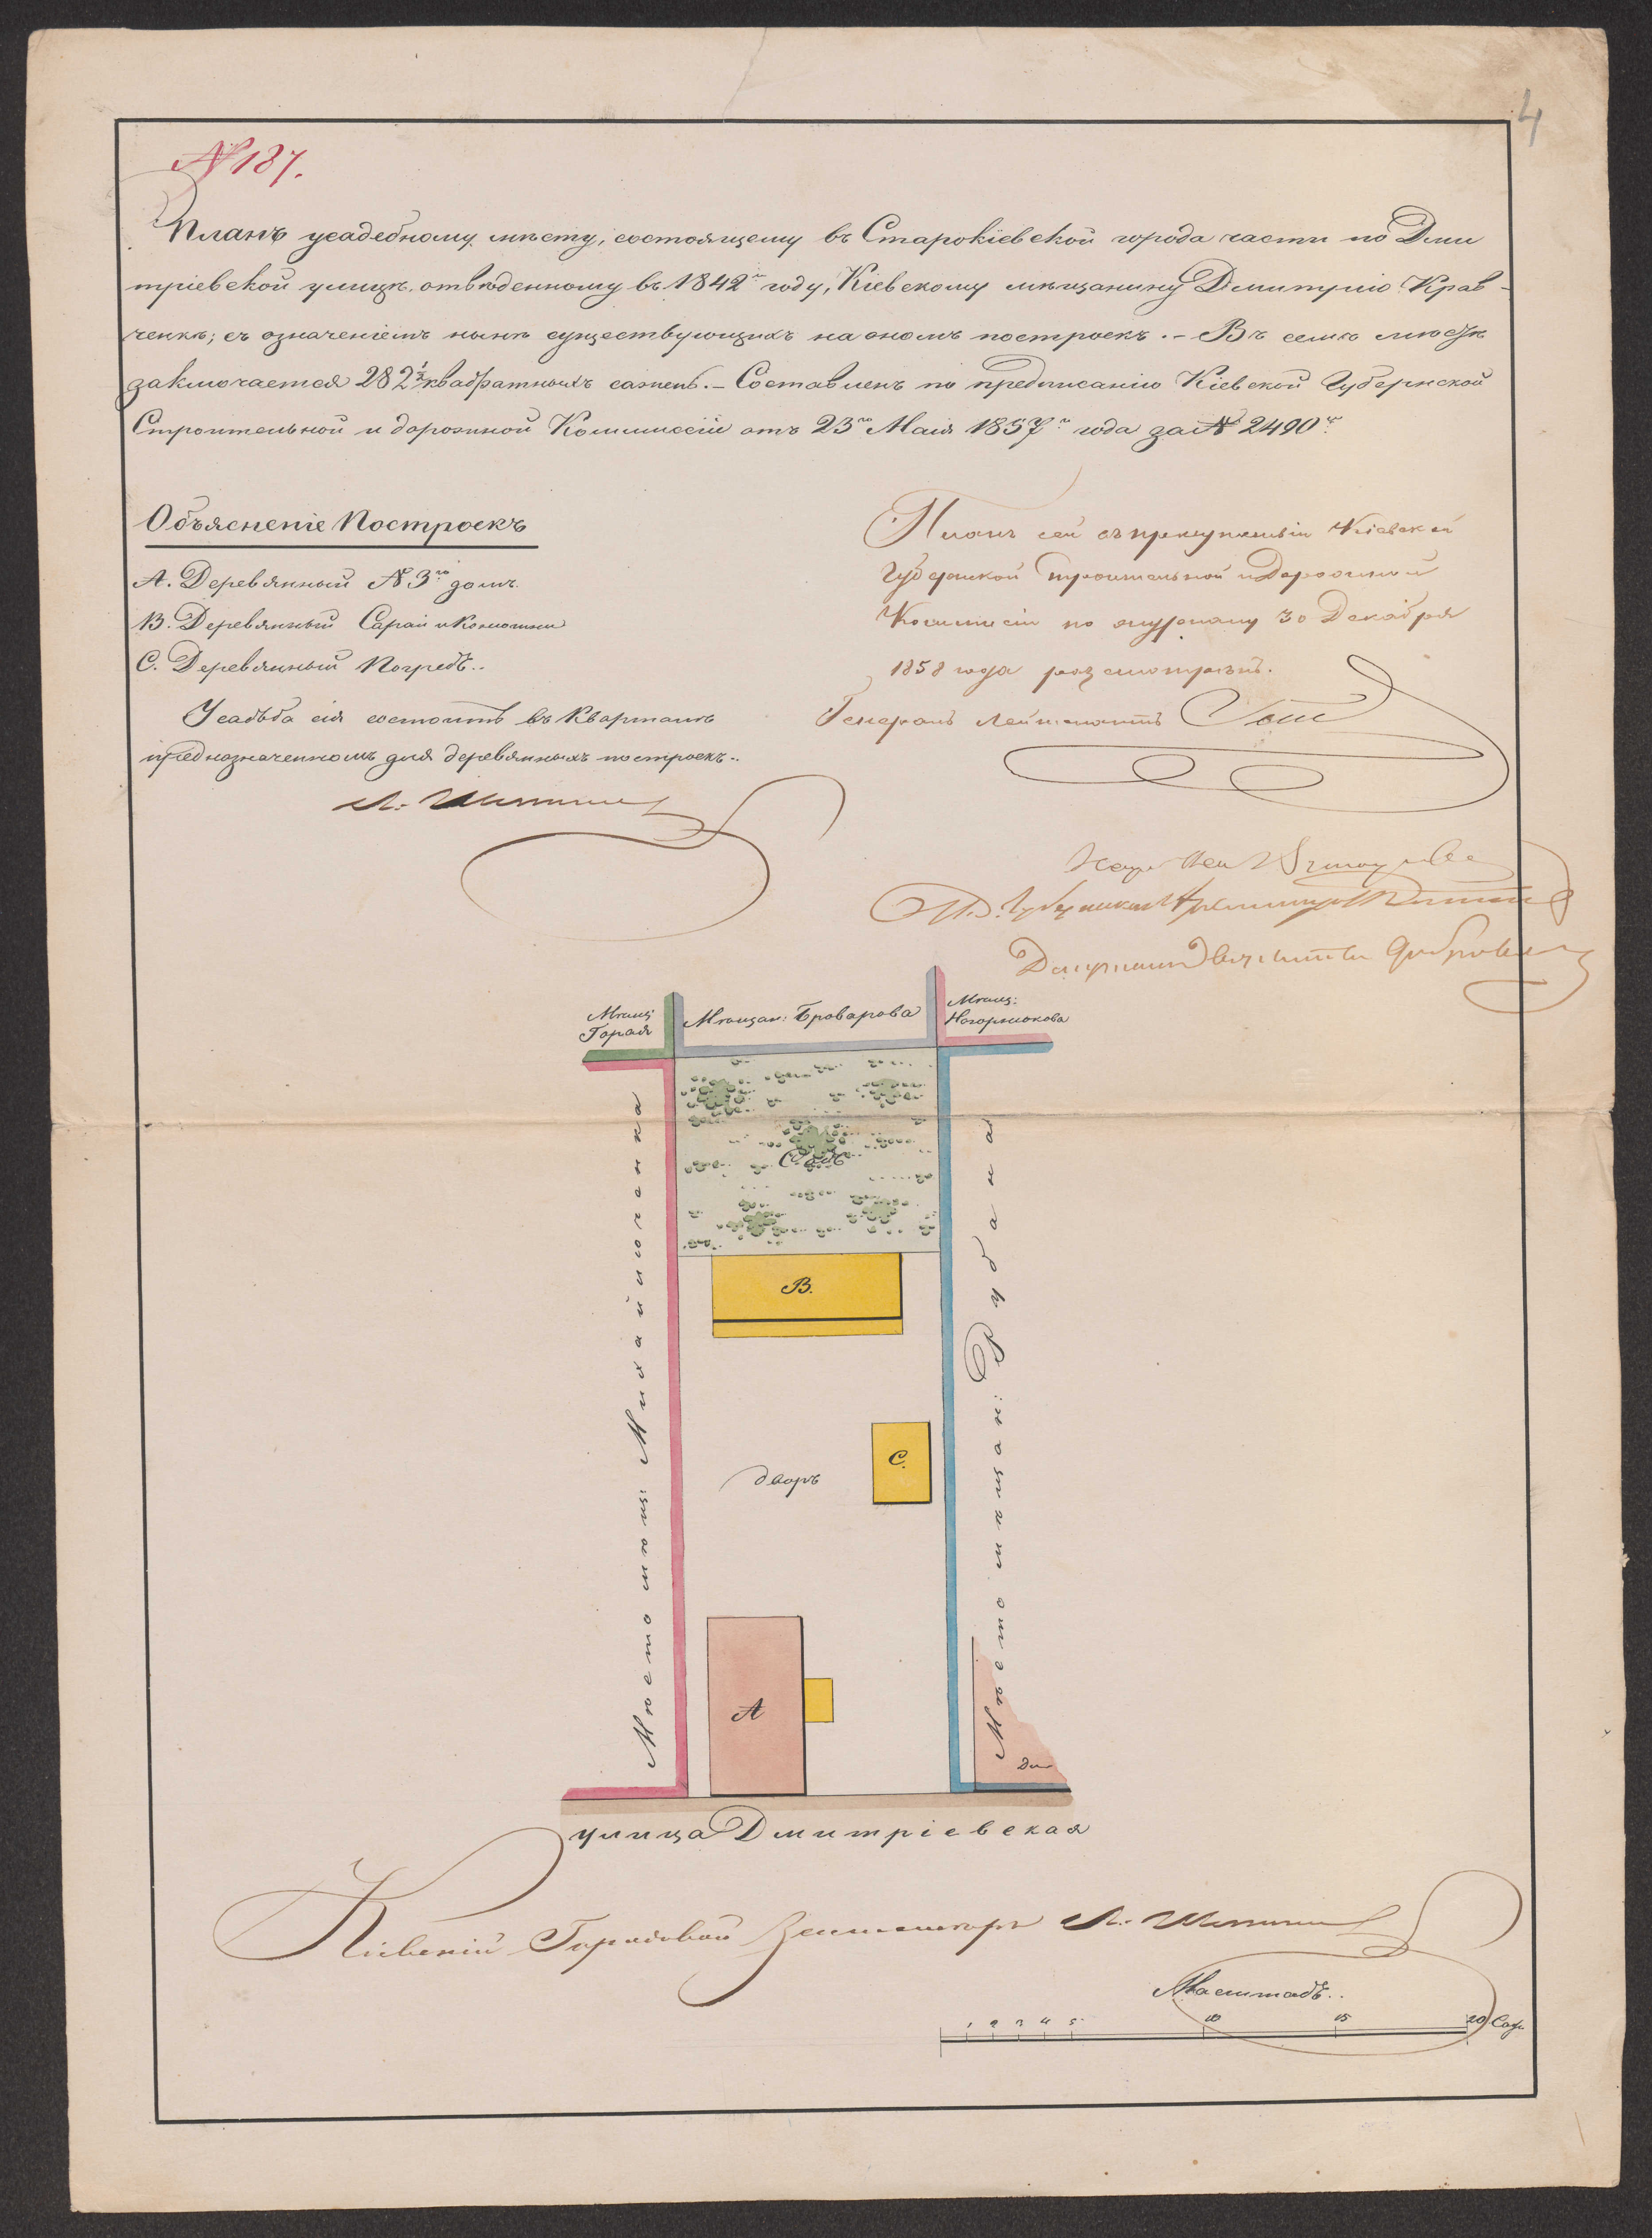 4
№ 187.
Планъ усадебному мѣсту, состоящему въ Старокіевской города части по Дми
тріевской улицѣ, отведенному въ 1842м году, Кіевскому мѣщанину Дмитрію Крав-
ченкѣ; съ означеніемъ нынѣ существующихъ на ономъ построекъ.- Въ семъ мѣстѣ
заключается 282 1/2 квадратныхъ сажень.- Составленъ по предписанію Кіевской Губернской
Строительной и дорожной Коммиссіи отъ 23го Маія 1857го года за № 2490м.
Объясненіе Построекъ
А. Деревянный № 3го домъ.
В. Деревянный Сарай и Конюшни
С. Деревянный Погребъ..
Усадьба сія состоитъ въ Кварталѣ
предназначенномъ для деревянныхъ построекъ..
Планъ сей въ присутствіи Кіевской
Губернской Строительной и Дорожной
Комисіи по журналу 30 Декабря
1858 года разсмотрѣнъ.
Генералъ Лейтенантъ
Мѣщ:
Горая
Мѣщан: Броварова
Мѣщ:
Нагорнюкова
Садъ
В.
С.
дворъ
А
Мѣсто мѣщ: Михайличенка
Мѣсто мѣщан: Рубана
До
улица Дмитріевская
Кіевскій Городовой Землемѣръ
Масштабъ..
1 2 3 4 5 10 15 20 Саж.